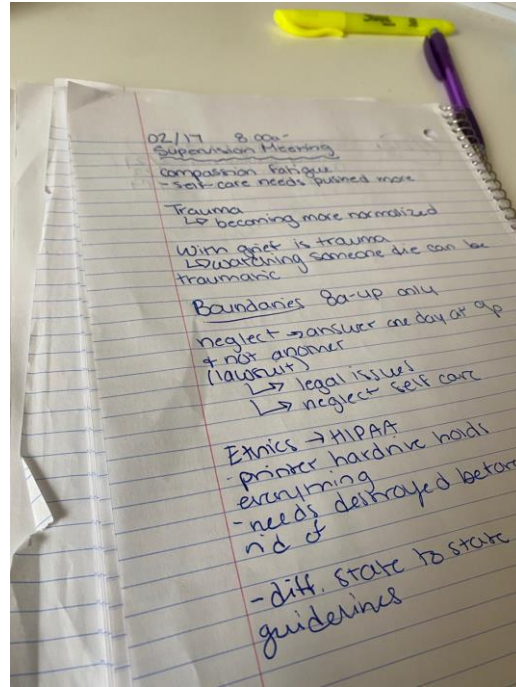 02/17 8:00a-
Supervision Meeting
compassion fatigue
- self-care needs pushed more
Trauma
↳ becoming more normalized
With grief is trauma
↳ watching someone die can be
traumatic
Boundaries 8a-4p only
neglect → answer one day at 9p
+ not another
(lawsuit)
↳ legal issues
↳ neglect self care
Ethics → HIPAA
- printer hardrive holds
everything
- needs destroyed before
rid of
- diff. state to state
guidelines